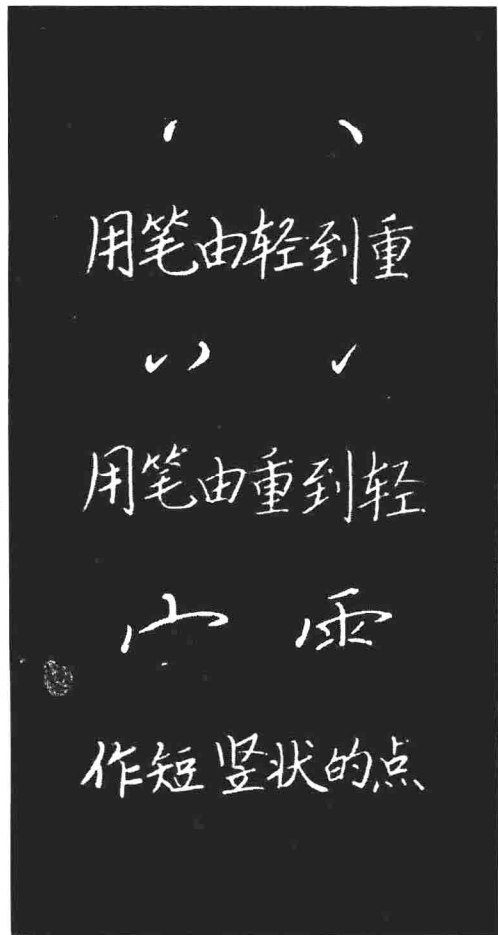 用笔由轻到重
用笔由重到轻
宀 ⻗
作短竖状的点